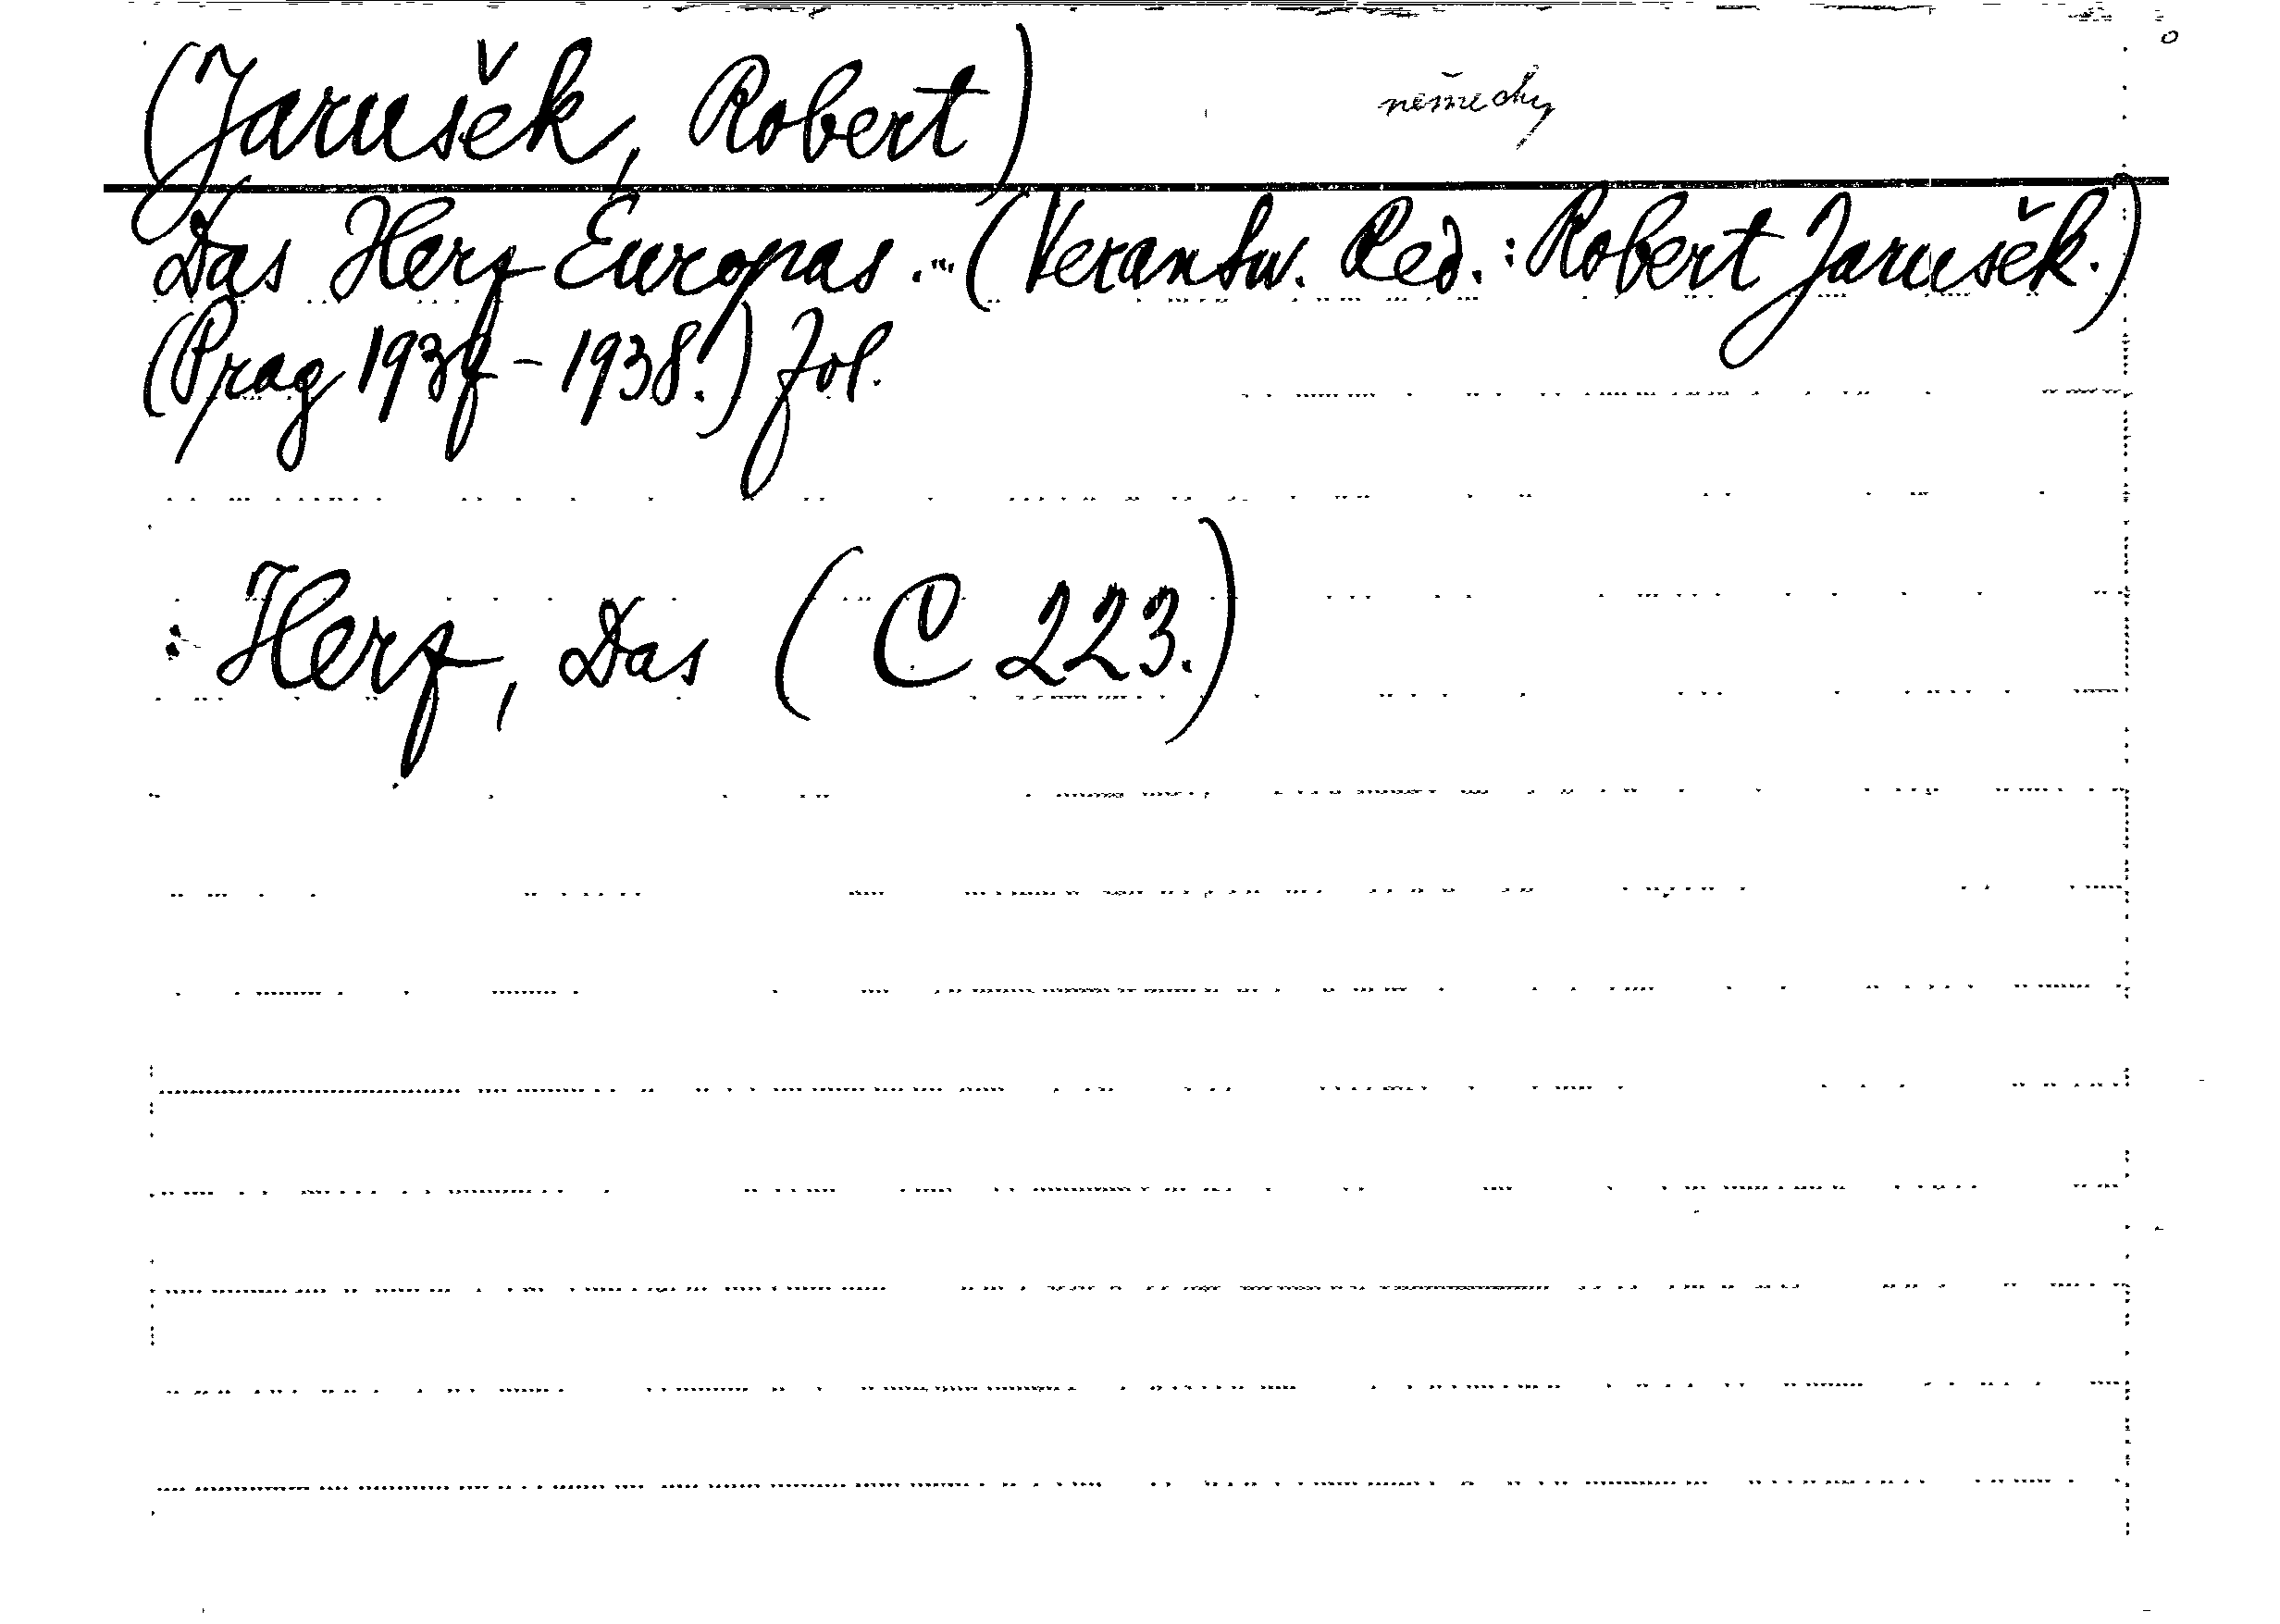 (Jarušek, Robert) německy
Das Herz Europas..." (Verantw. Red.: Robert Jarušek.)
(Prag 1937-1938.) fol.
: Herz, Das (C 223.)